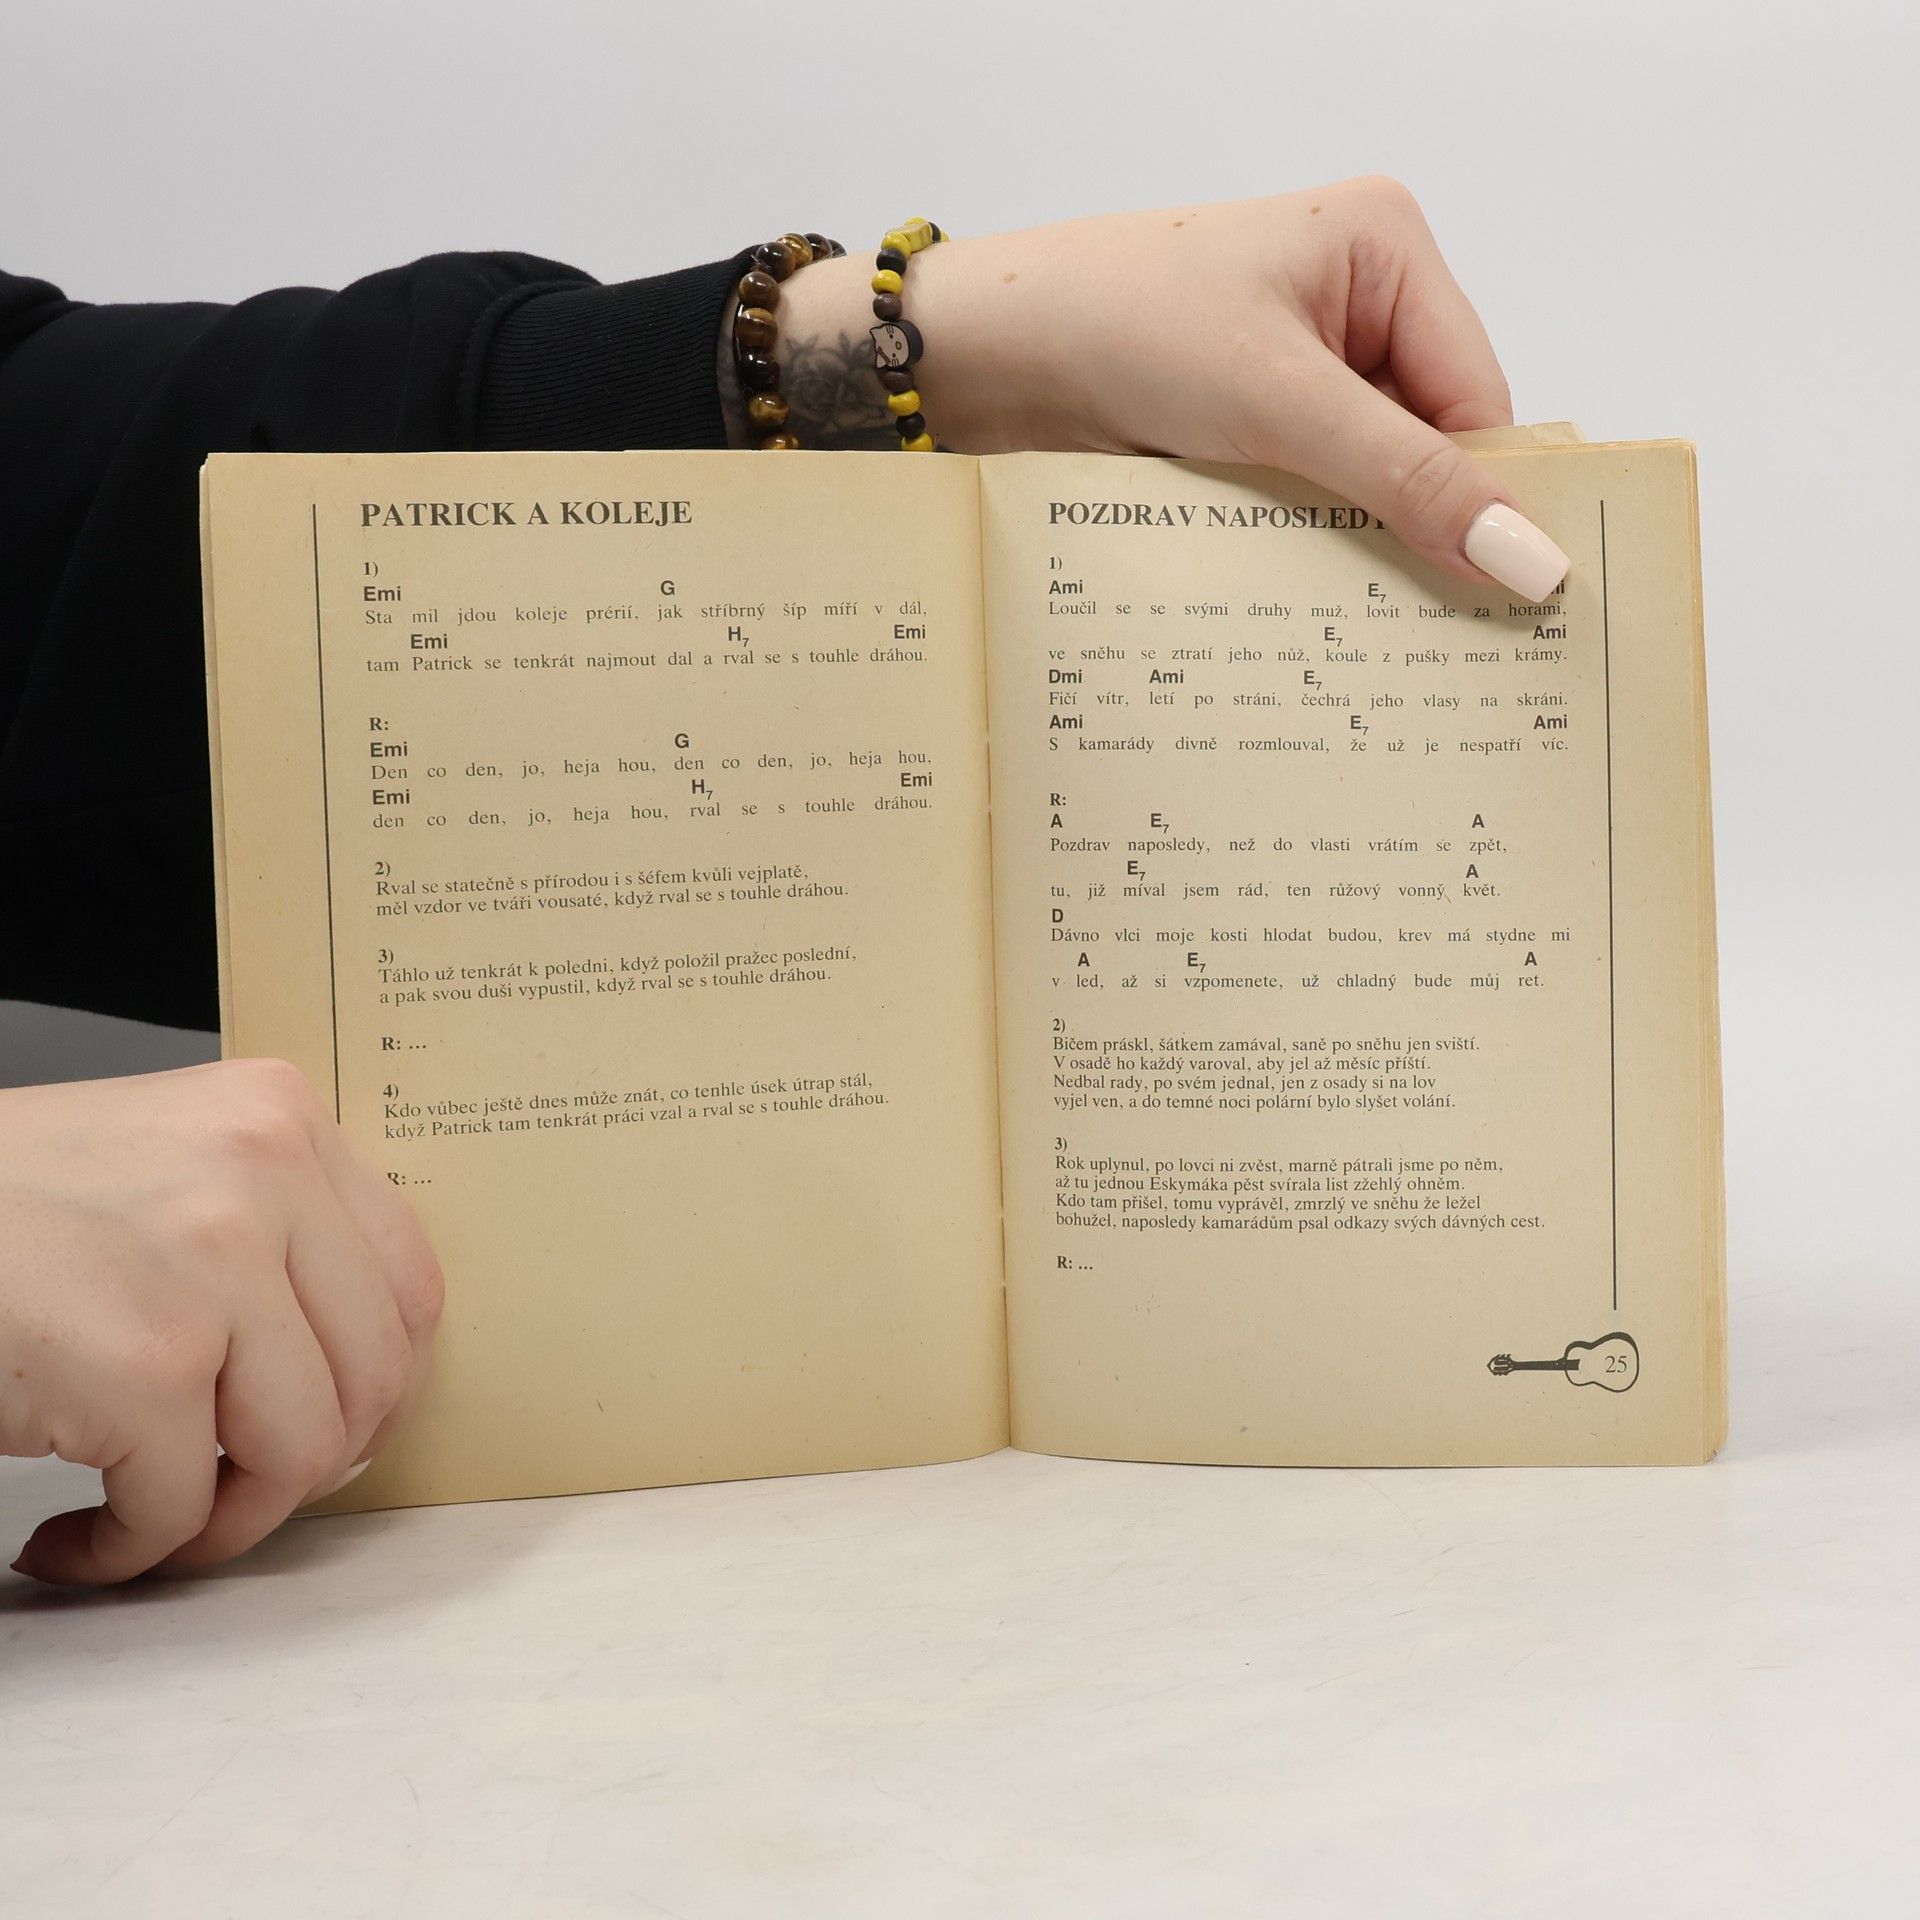 PATRICK A KOLEJE
1)
Emi G
Sta mil jdou koleje prérií, jak stříbrný šíp míří v dál,
Emi H7 Emi
tam Patrick se tenkrát najmout dal a rval se s touhle dráhou.
R:
Emi G
Den co den, jo, heja hou, den co den, jo, heja hou,
Emi H7 Emi
den co den, jo, heja hou, rval se s touhle dráhou.
2)
Rval se statečně s přírodou i s šéfem kvůli vejplatě,
měl vzdor ve tváři vousaté, když rval se s touhle dráhou.
3)
Táhlo už tenkrát k poledni, když položil pražec poslední,
a pak svou duši vypustil, když rval se s touhle dráhou.
R: ...
4)
Kdo vůbec ještě dnes může znát, co tenhle úsek útrap stál,
když Patrick tam tenkrát práci vzal a rval se s touhle dráhou.
R: ...
POZDRAV
1)
Ami E7
Loučil se se svými druhy muž, lovit bude za horami,
E7 Ami
ve sněhu se ztratí jeho nůž, koule z pušky mezi krámy.
Dmi Ami E7
Fičí vítr, letí po stráni, čechrá jeho vlasy na skráni.
Ami E7 Ami
S kamarády divně rozmlouval, že už je nespatří víc.
R:
A E7 A
Pozdrav naposledy, než do vlasti vrátím se zpět,
E7 A
tu, již míval jsem rád, ten růžový vonný květ.
D
Dávno vlci moje kosti hlodat budou, krev má stydne mi
A E7 A
v led, až si vzpomenete, už chladný bude můj ret.
2)
Bičem práskl, šátkem zamával, saně po sněhu jen sviští.
V osadě ho každý varoval, aby jel až měsíc příští.
Nedbal rady, po svém jednal, jen z osady si na lov
vyjel ven, a do temné noci polární bylo slyšet volání.
3)
Rok uplynul, po lovci ni zvěst, marně pátrali jsme po něm,
až tu jednou Eskymáka pěst svírala list zžehlý ohněm.
Kdo tam přišel, tomu vyprávěl, zmrzlý ve sněhu že ležel
bohužel, naposledy kamarádům psal odkazy svých dávných cest.
R: ...
25